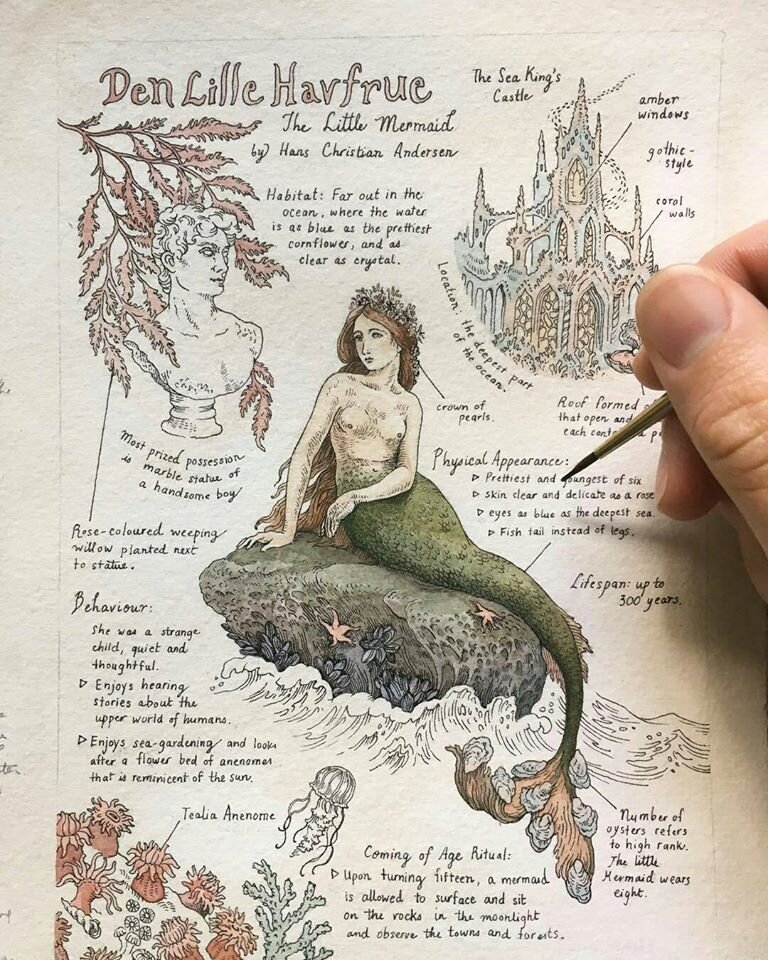 Den Lille Havfrue
The Little Mermaid
by Hans Christian Andersen
Habitat: Far out in the
ocean, where the water
is as blue as the prettiest
cornflower, and as
clear as crystal.
The Sea King's
Castle
amber
windows
gothic-
style
coral
walls
Location: the deepest part
of the ocean.
Roof formed
that open and
each
crown of
pearls.
Most prized possession
is marble statue of
a handsome boy
Rose-coloured weeping
willow planted next
to statue.
Physical Appearance:
▷ Prettiest and youngest of six
▷ skin clear and delicate as a rose
▷ eyes as blue as the deepest sea.
▷ Fish tail instead of legs.
Lifespan: up to
300 years.
Behaviour:
She was a strange
child, quiet and
thoughtful.
▷ Enjoys hearing
stories about the
upper world of humans.
▷ Enjoys sea-gardening and looks
after a flower bed of anenomes
that is reminicent of the sun.
Tealia Anenome
Number of
oysters refers
to high rank.
The little
Mermaid wears
eight.
Coming of Age Ritual:
▷ Upon turning fifteen, a mermaid
is allowed to surface and sit
on the rocks in the moonlight
and observe the towns and forests.